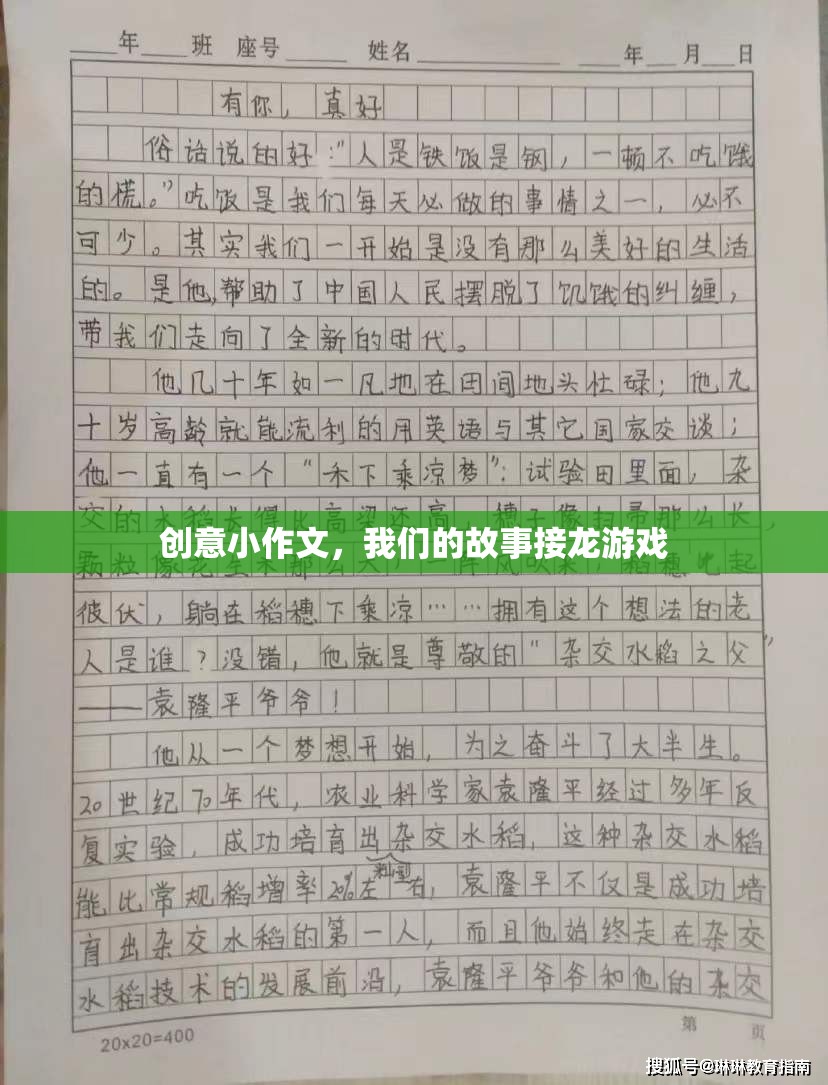 年 班 座号 姓名 年 月 日
有你，真好
俗话说的好："人是铁饭是钢，一顿不吃饿
的慌。"吃饭是我们每天必做的事情之一，必不
可少。其实我们一开始是没有那么美好的生活
的。是他，帮助了中国人民摆脱了饥饿的纠缠，
带我们走向了全新的时代。
他几十年如一凡地在田间地头忙碌；他九
十岁高龄就能流利的用英语与其它国家交谈；
他一直有一个"禾下乘凉梦"：试验田里面，杂
交的水稻长得比高粱还高，穗子像扫帚那么长，
创意小作文，我们的故事接龙游戏
颗粒像花生米那么大，一阵风吹来，稻穗此起
彼伏，躺在稻穗下乘凉……拥有这个想法的老
人是谁？没错，他就是尊敬的"杂交水稻之父"
——袁隆平爷爷！
他从一个梦想开始，为之奋斗了大半生。
20世纪70年代，农业科学家袁隆平经过多年反
复实验，成功培育出杂交水稻，这种杂交水稻
能比常规稻增率20%左右，袁隆平不仅是成功培
育出杂交水稻的第一人，而且他始终走在杂交
水稻技术的发展前沿，袁隆平爷爷和他的杂交
20x20=400
第 页
搜狐号@琳琳教育指南